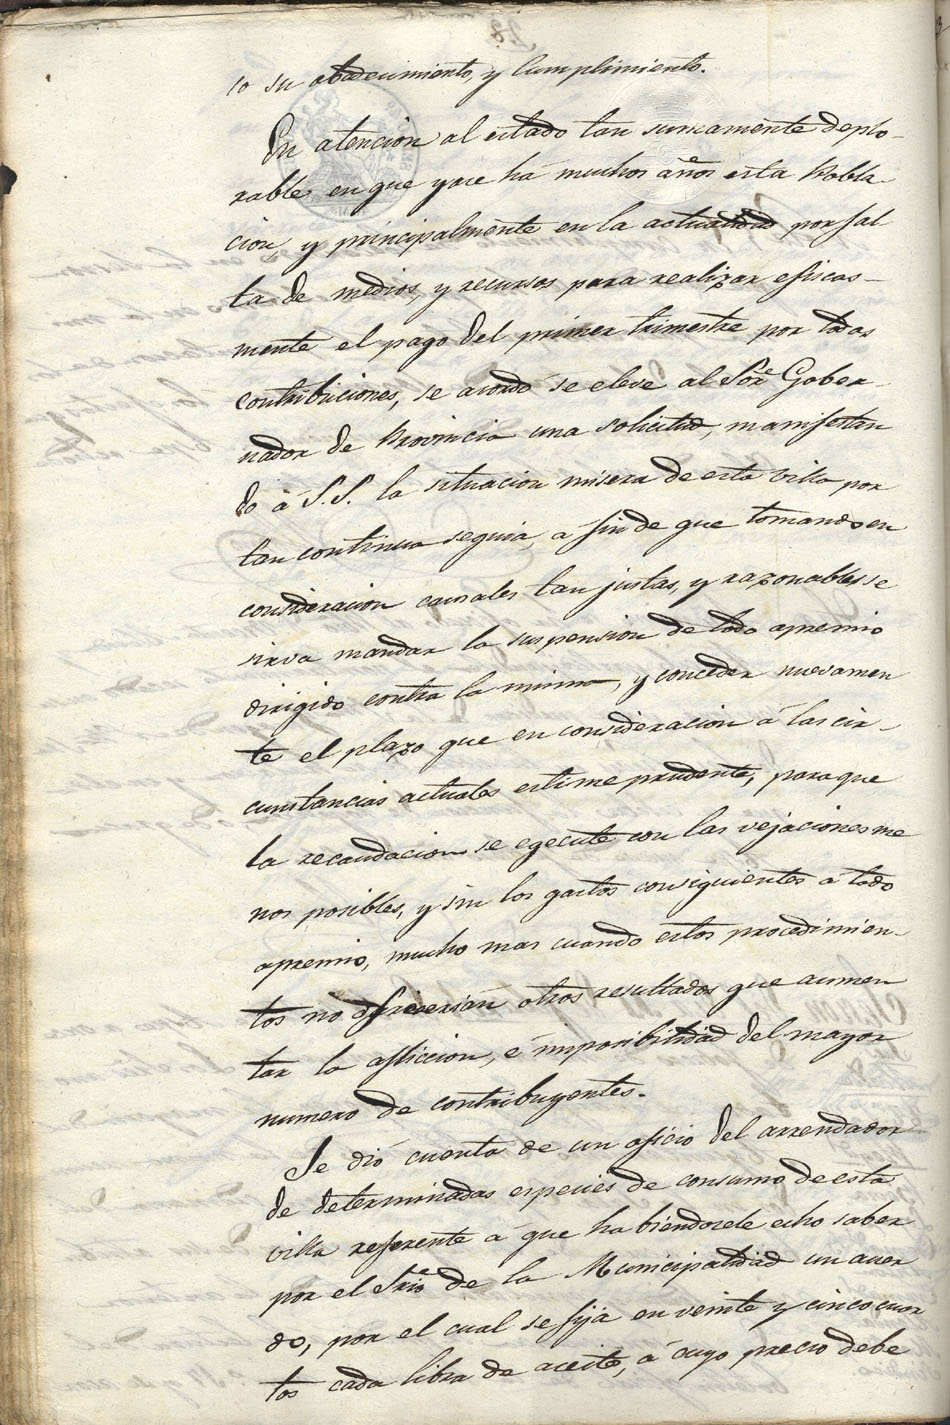 so su obedecimiento, y cumplimiento.
En atencion al estado tan sumamente deplo-
rable en que yace há muchos años esta Pobla-
cion, y principalmente en la actualidad por fal
ta de medios, y recursos para realizar eficas-
mente el pago del primer trimestre por todas
contribuciones, se acordó se eleve al Sor Gober-
nador de Provincia una solicitud, manifestan
do á S.S. la situacion misera de esta villa por
tan continua seguia, a fin de que tomando en
consideracion causales tan justas, y razonables se
sirva mandar la suspension de todo apremio
dirigido contra la misma, y conceder nuevamen
te el plazo que en consideracion á las cir-
cunstancias actuales estime prudente, para que
la recaudacion se egecute con las vejaciones me
nos posibles, y sin los gastos consiguientes á todo
apremio, mucho mas cuando estos procedimien-
tos no ofrecerian otros resultados que aumen
tar la afliccion, é imposibilidad del mayor
numero de contribuyentes.
Se dió cuenta de un oficio del arrendador
de determinadas especies de consumo de esta
villa referente á que habiendosele echo saber
por el Srio de la Municipalidad un acuer
do, por el cual se fija en veinte y cinco cuar
tos cada libra de aceite, á cuyo precio debe